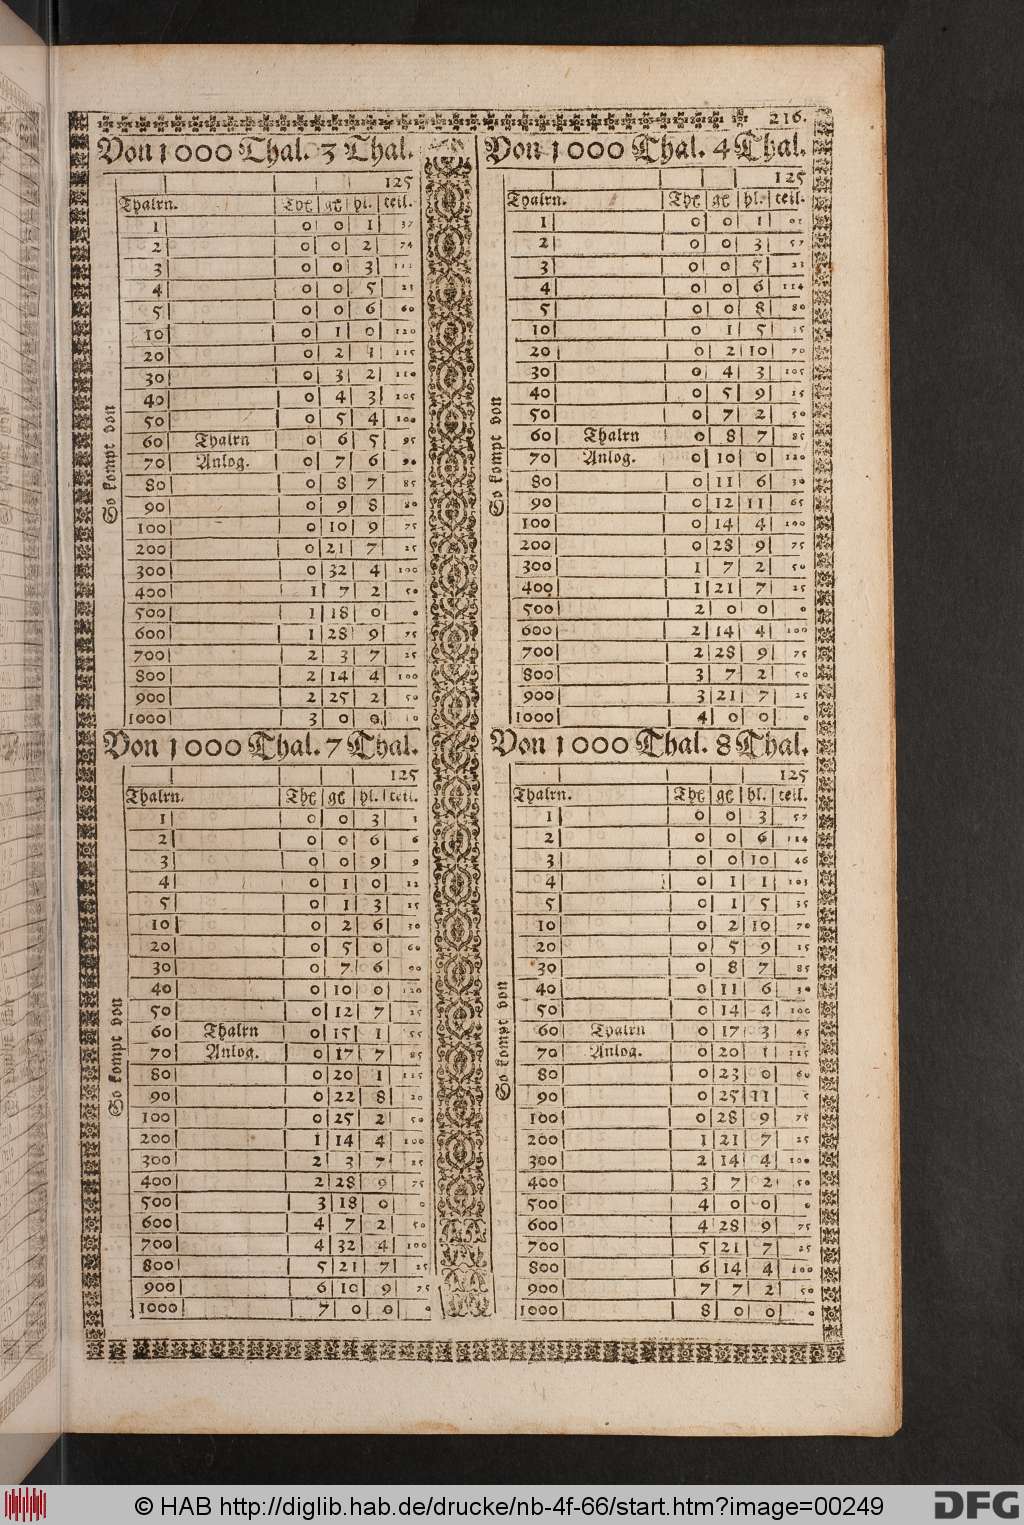 216.
Von 1000 Thal. 3 Thal.
125
Thalrn. Thl gl hl. teil.
So kompt von
1 0 0 1 37
2 0 0 2 74
3 0 0 3 111
4 0 0 5 23
5 0 0 6 60
10 0 1 0 120
20 0 2 1 115
30 0 3 2 110
40 0 4 3 105
50 0 5 4 100
60 Thalrn 0 6 5 95
70 Anlog. 0 7 6 90
80 0 8 7 85
90 0 9 8 80
100 0 10 9 75
200 0 21 7 25
300 0 32 4 100
400 1 7 2 50
500 1 18 0 0
600 1 28 9 75
700 2 3 7 25
800 2 14 4 100
900 2 25 2 50
1000 3 0 0 0
Von 1000 Thal. 4 Thal.
125
Thalrn. Thl gl hl. teil.
So kompt von
1 0 0 1 91
2 0 0 3 57
3 0 0 5 23
4 0 0 6 114
5 0 0 8 80
10 0 1 5 35
20 0 2 10 70
30 0 4 3 105
40 0 5 9 15
50 0 7 2 50
60 Thalrn 0 8 7 85
70 Anlog. 0 10 0 120
80 0 11 6 30
90 0 12 11 65
100 0 14 4 100
200 0 28 9 75
300 1 7 2 50
400 1 21 7 25
500 2 0 0 0
600 2 14 4 100
700 2 28 9 75
800 3 7 2 50
900 3 21 7 25
1000 4 0 0 0
Von 1000 Thal. 7 Thal.
125
Thalrn. Thl gl hl. teil.
So kompt von
1 0 0 3 3
2 0 0 6 6
3 0 0 9 9
4 0 1 0 12
5 0 1 3 15
10 0 2 6 30
20 0 5 0 60
30 0 7 6 90
40 0 10 0 120
50 0 12 7 25
60 Thalrn 0 15 1 55
70 Anlog. 0 17 7 85
80 0 20 1 115
90 0 22 8 20
100 0 25 2 50
200 1 14 4 100
300 2 3 7 25
400 2 28 9 75
500 3 18 0 0
600 4 7 2 50
700 4 32 4 100
800 5 21 7 25
900 6 10 9 75
1000 7 0 0 0
Von 1000 Thal. 8 Thal.
125
Thalrn. Thl gl hl. teil.
So kompt von
1 0 0 3 57
2 0 0 6 114
3 0 0 10 46
4 0 1 1 103
5 0 1 5 35
10 0 2 10 70
20 0 5 9 15
30 0 8 7 85
40 0 11 6 30
50 0 14 4 100
60 Thalrn 0 17 3 45
70 Anlog. 0 20 1 115
80 0 23 0 60
90 0 25 11 5
100 0 28 9 75
200 1 21 7 25
300 2 14 4 100
400 3 7 2 50
500 4 0 0 0
600 4 28 9 75
700 5 21 7 25
800 6 14 4 100
900 7 7 2 50
1000 8 0 0 0
© HAB http://diglib.hab.de/drucke/nb-4f-66/start.htm?image=00249
DFG